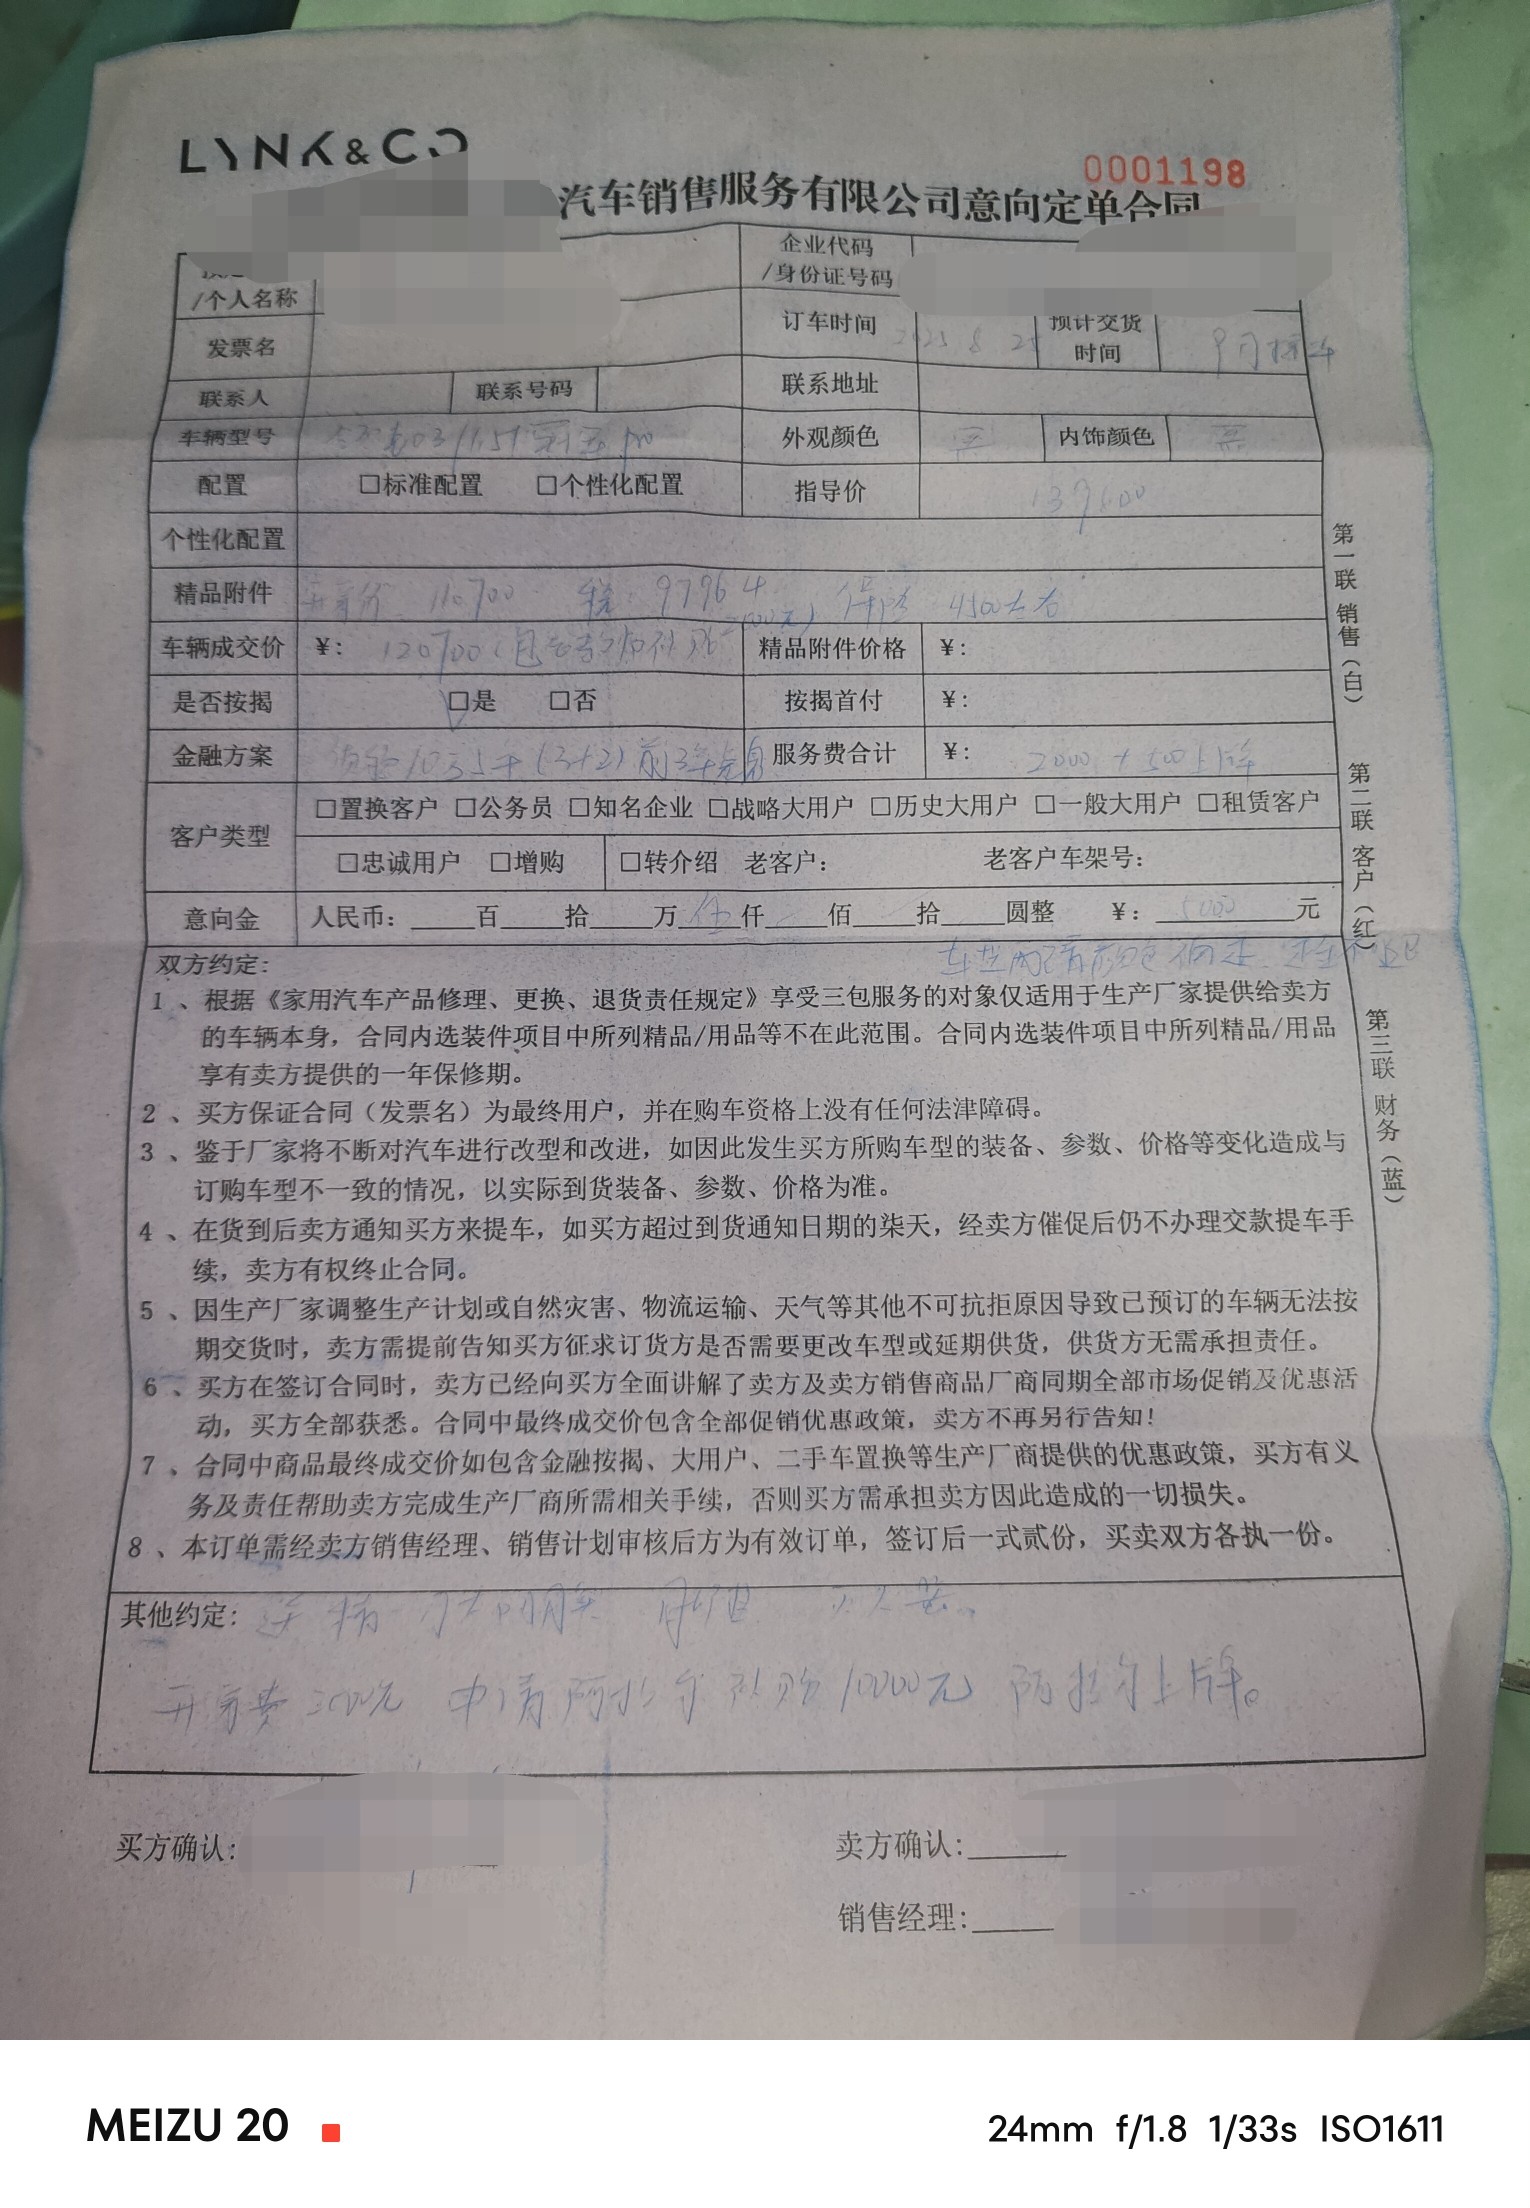 LYNK & CO
0001198
汽车销售服务有限公司意向定单合同
/个人名称 企业代码/身份证号码
发票名 订车时间 2025.8.2 预计交货时间 9月
联系人 联系号码 联系地址
车辆型号 03 pro 外观颜色 内饰颜色
配置 □标准配置 □个性化配置 指导价 139800
个性化配置
精品附件 开票价 110700 税 9796.4 保险 4500左右
车辆成交价 ¥: 120700(包 精品附件价格 ¥:
是否按揭 □是 □否 按揭首付 ¥:
金融方案 10万5千(3+2)前3年免息 服务费合计 ¥: 2000+500上牌
客户类型 □置换客户 □公务员 □知名企业 □战略大用户 □历史大用户 □一般大用户 □租赁客户
□忠诚用户 □增购 □转介绍 老客户: 老客户车架号:
意向金 人民币:____百____拾____万 伍 仟____佰____拾____圆整 ¥: 5000 元
双方约定:
1、根据《家用汽车产品修理、更换、退货责任规定》享受三包服务的对象仅适用于生产厂家提供给卖方
的车辆本身，合同内选装件项目中所列精品/用品等不在此范围。合同内选装件项目中所列精品/用品
享有卖方提供的一年保修期。
2、买方保证合同（发票名）为最终用户，并在购车资格上没有任何法律障碍。
3、鉴于厂家将不断对汽车进行改型和改进，如因此发生买方所购车型的装备、参数、价格等变化造成与
订购车型不一致的情况，以实际到货装备、参数、价格为准。
4、在货到后卖方通知买方来提车，如买方超过到货通知日期的柒天，经卖方催促后仍不办理交款提车手
续，卖方有权终止合同。
5、因生产厂家调整生产计划或自然灾害、物流运输、天气等其他不可抗拒原因导致已预订的车辆无法按
期交货时，卖方需提前告知买方征求订货方是否需要更改车型或延期供货，供货方无需承担责任。
6、买方在签订合同时，卖方已经向买方全面讲解了卖方及卖方销售商品厂商同期全部市场促销及优惠活
动，买方全部获悉。合同中最终成交价包含全部促销优惠政策，卖方不再另行告知！
7、合同中商品最终成交价如包含金融按揭、大用户、二手车置换等生产厂商提供的优惠政策，买方有义
务及责任帮助卖方完成生产厂商所需相关手续，否则买方需承担卖方因此造成的一切损失。
8、本订单需经卖方销售经理、销售计划审核后方为有效订单，签订后一式贰份，买卖双方各执一份。
其他约定: 送
申请 10000元 上牌。
买方确认: 卖方确认:
销售经理:
第一联 销售（白）
第二联 客户（红）
第三联 财务（蓝）
MEIZU 20 24mm f/1.8 1/33s ISO1611